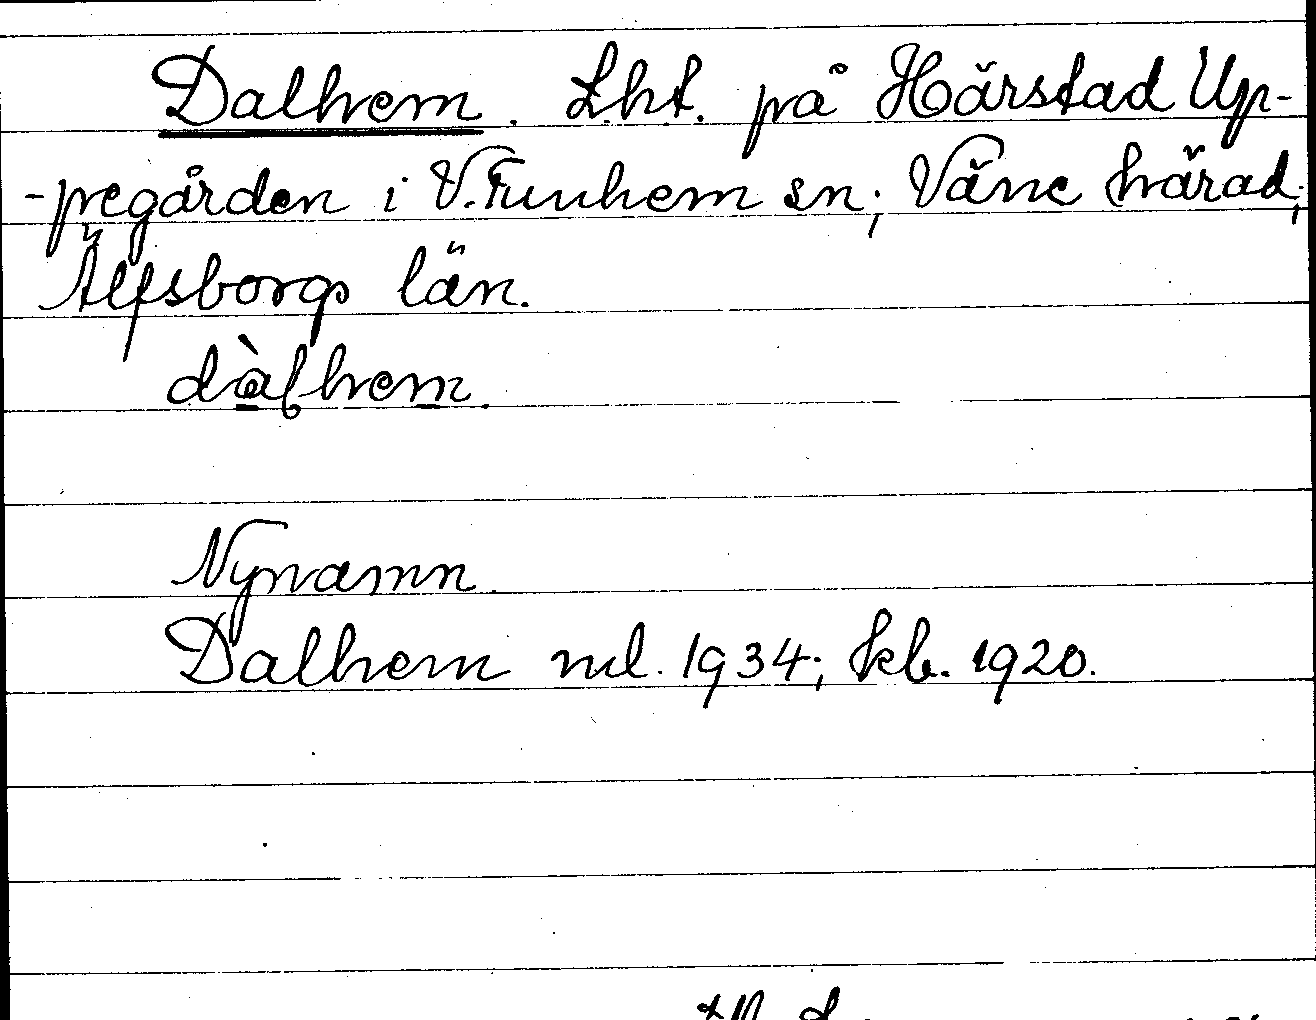 Dalhem. Lht. på Härstad Up-
-pegården i V. Tunhem sn; Väne härad;
Älfsborgs län.
dàlhem.
Nynamn.
Dalhem ml. 1934; kb. 1920.